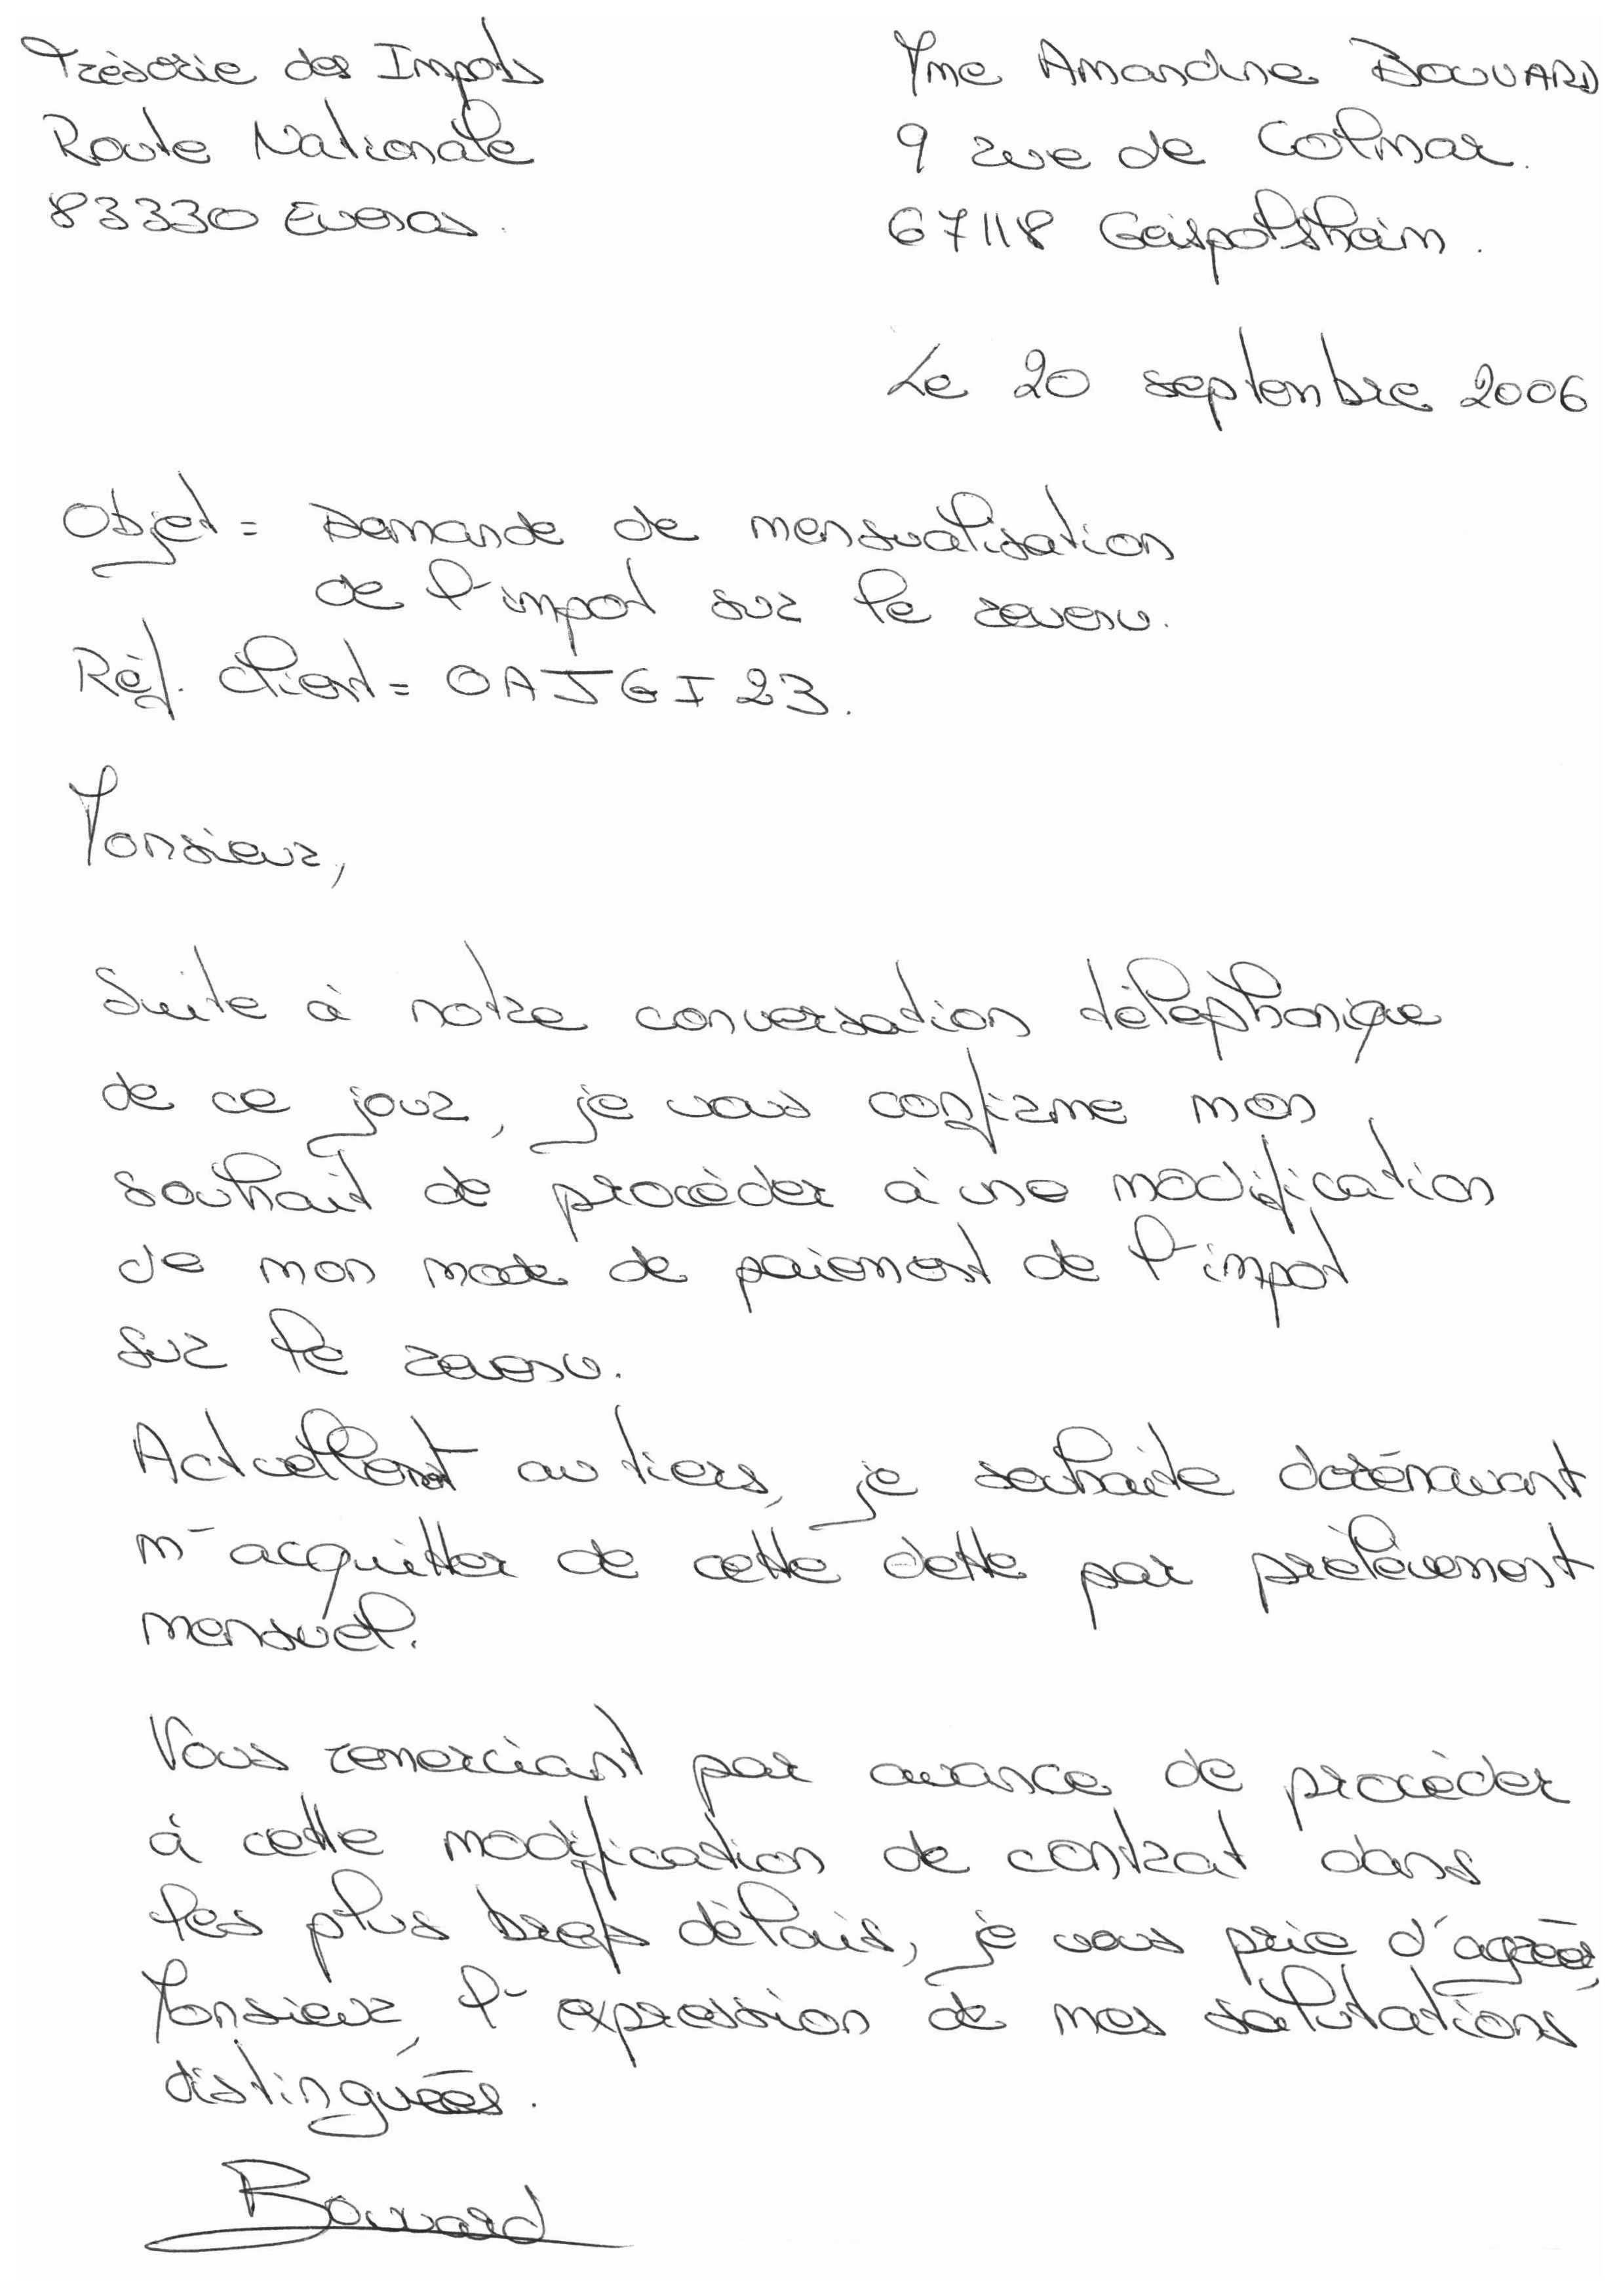 Trésorie des Impots
Route Nationale
83330 Evenos.
Mme Amandine BOUVARD
9 rue de Colmar.
67118 Geispolsheim.
Le 20 septembre 2006
Objet = Demande de mensualisation
de l'impot sur le revenu.
Réf. client = OAJGI23.
Monsieur,
Suite à notre conversation téléphonique
de ce jour, je vous confirme mon
souhait de procéder à une modification
de mon mode de paiement de l'impot
sur le revenu.
Actuellement au tiers, je souhaite dorénavant
m'acquitter de cette dette par prélèvement
mensuel.
Vous remerciant par avance de procéder
à cette modification de contrat dans
les plus brefs délais, je vous prie d'agréer,
Monsieur, l'expression de mes salutations
distinguées.
Bouvard